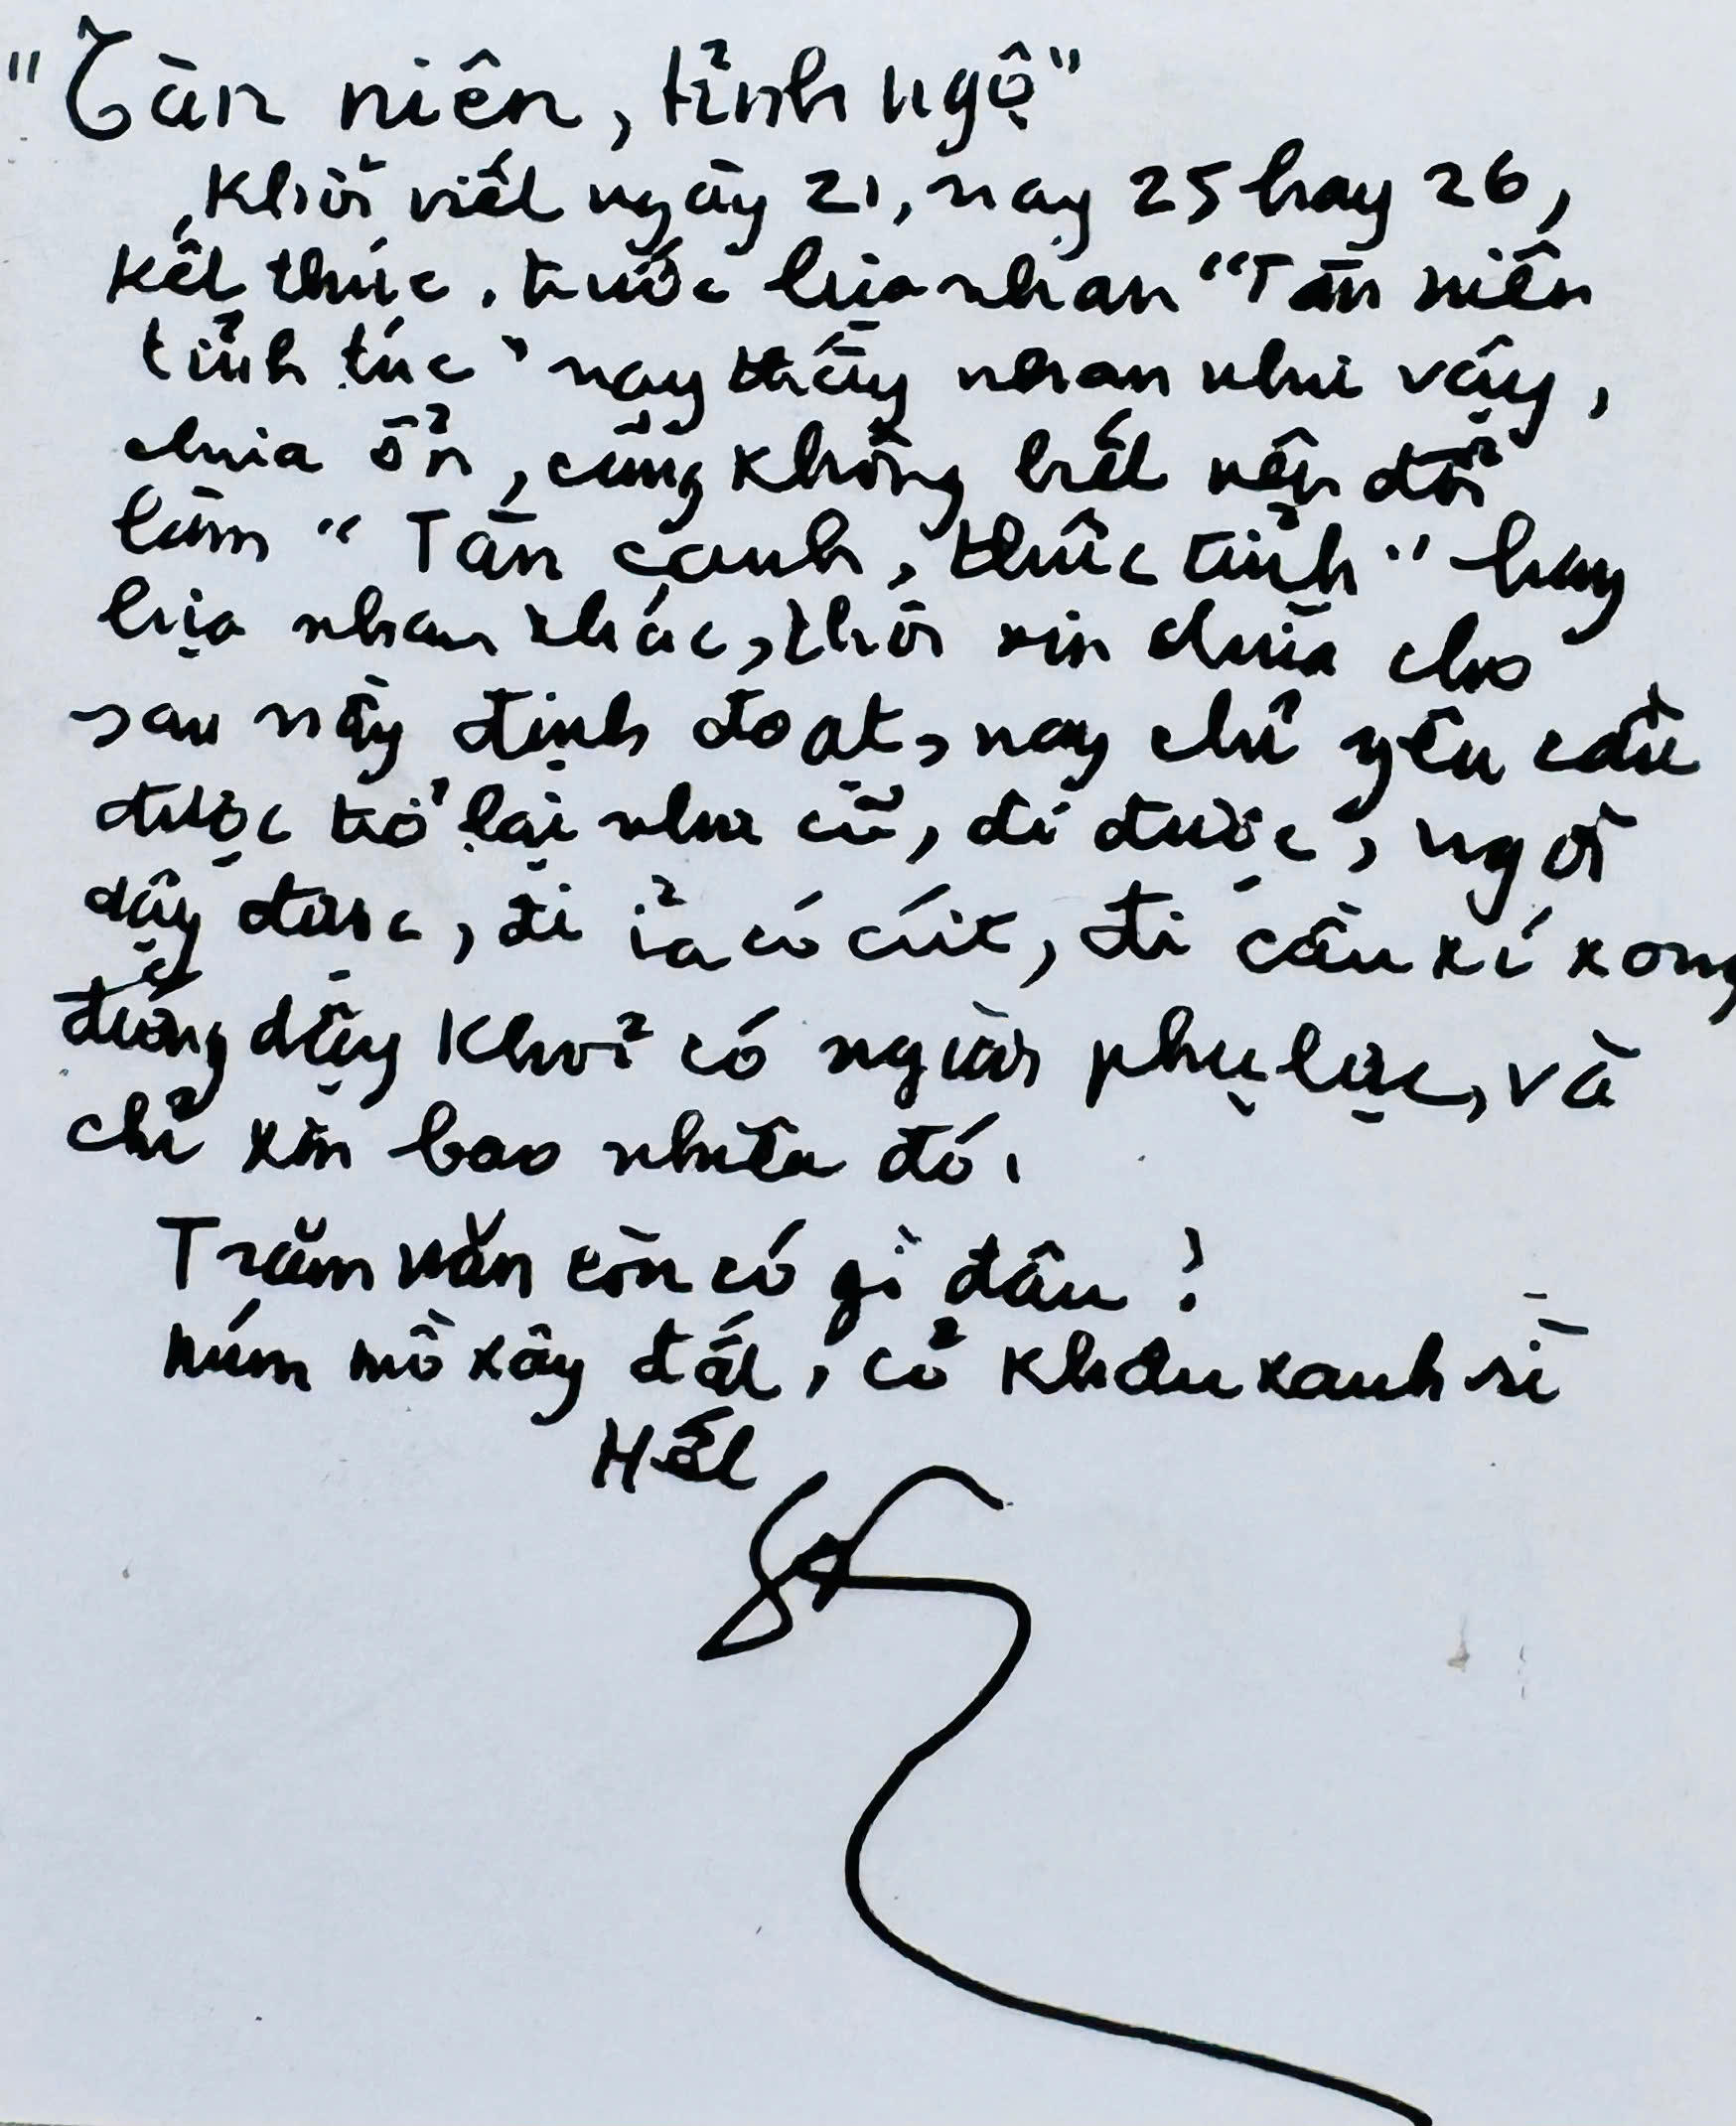 "Tàn niên, tỉnh ngộ"
Khởi viết ngày 21, nay 25 hay 26,
kết thúc. trước lựa nhan "Tàn niên
tỉnh túc" nay thấy nhan như vậy,
chưa ổn, cũng không hết nên đổi
làm "Tàn canh, thức tỉnh" hay
lựa nhan khác, thôi xin chừa cho
sau này định đoạt, nay chỉ yêu cầu
được trở lại như cũ, đi được, ngồi
dậy được, đi ỉa có cứt, đi cầu xí xong
đứng dậy khỏi có người phụ lực, và
chỉ xin bao nhiêu đó.
Trăm năm còn có gì đâu?
Núm mồ xây đất, cỏ khâu xanh rì
Hết